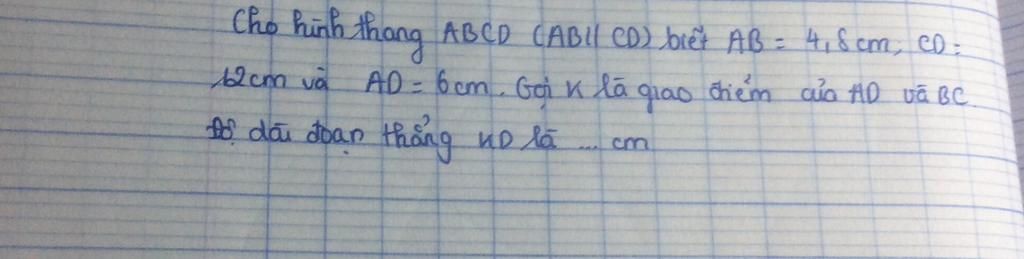 Cho hình thang ABCD (AB// CD) biết AB = 4,8cm, CD =
12cm và AD = 6cm. Gọi K là giao điểm của AD và BC
Độ dài đoạn thẳng KD là ... cm